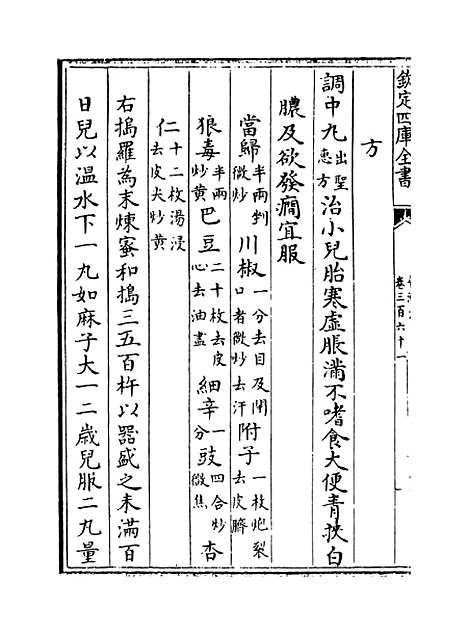 欽定四庫全書
卷三百六十一
方
調中丸出聖惠方治小兒胎寒虛脹滿不嗜食大便青挾白
膿及欲發癇宜服
當歸半兩剉微炒川椒一分去目及閉口者微炒去汗附子一枚炮裂去皮臍
狼毒半兩炒黄巴豆二十枚去皮心去油盡細辛一分豉四合炒微焦杏
仁十二枚湯浸去皮尖炒黄
右搗羅為末煉蜜和搗三五百杵以器盛之未滿百
日兒以溫水下一丸如麻子大一二歲兒服二丸量